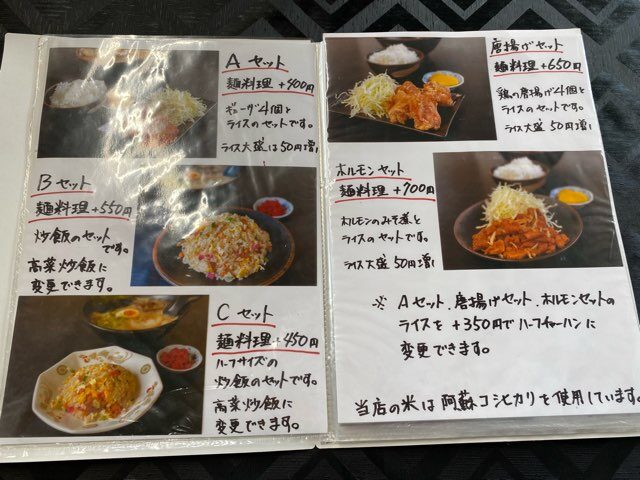 Aセット
麺料理+400円
ギョーザ4個と
ライスのセットです。
ライス大盛は50円増
Bセット
麺料理+550円
炒飯のセット
です。
高菜炒飯に
変更できます。
Cセット
麺料理+450円
ハーフサイズの
炒飯のセットです。
高菜炒飯に
変更できます。
唐揚げセット
麺料理+650円
鶏の唐揚げ4個と
ライスのセットです。
ライス大盛50円増し
ホルモンセット
麺料理+700円
ホルモンのみそ煮と
ライスのセットです。
ライス大盛50円増し
※Aセット.唐揚げセット.ホルモンセットの
ライスを+350円でハーフチャーハンに
変更できます。
当店の米は阿蘇コシヒカリを使用しています。